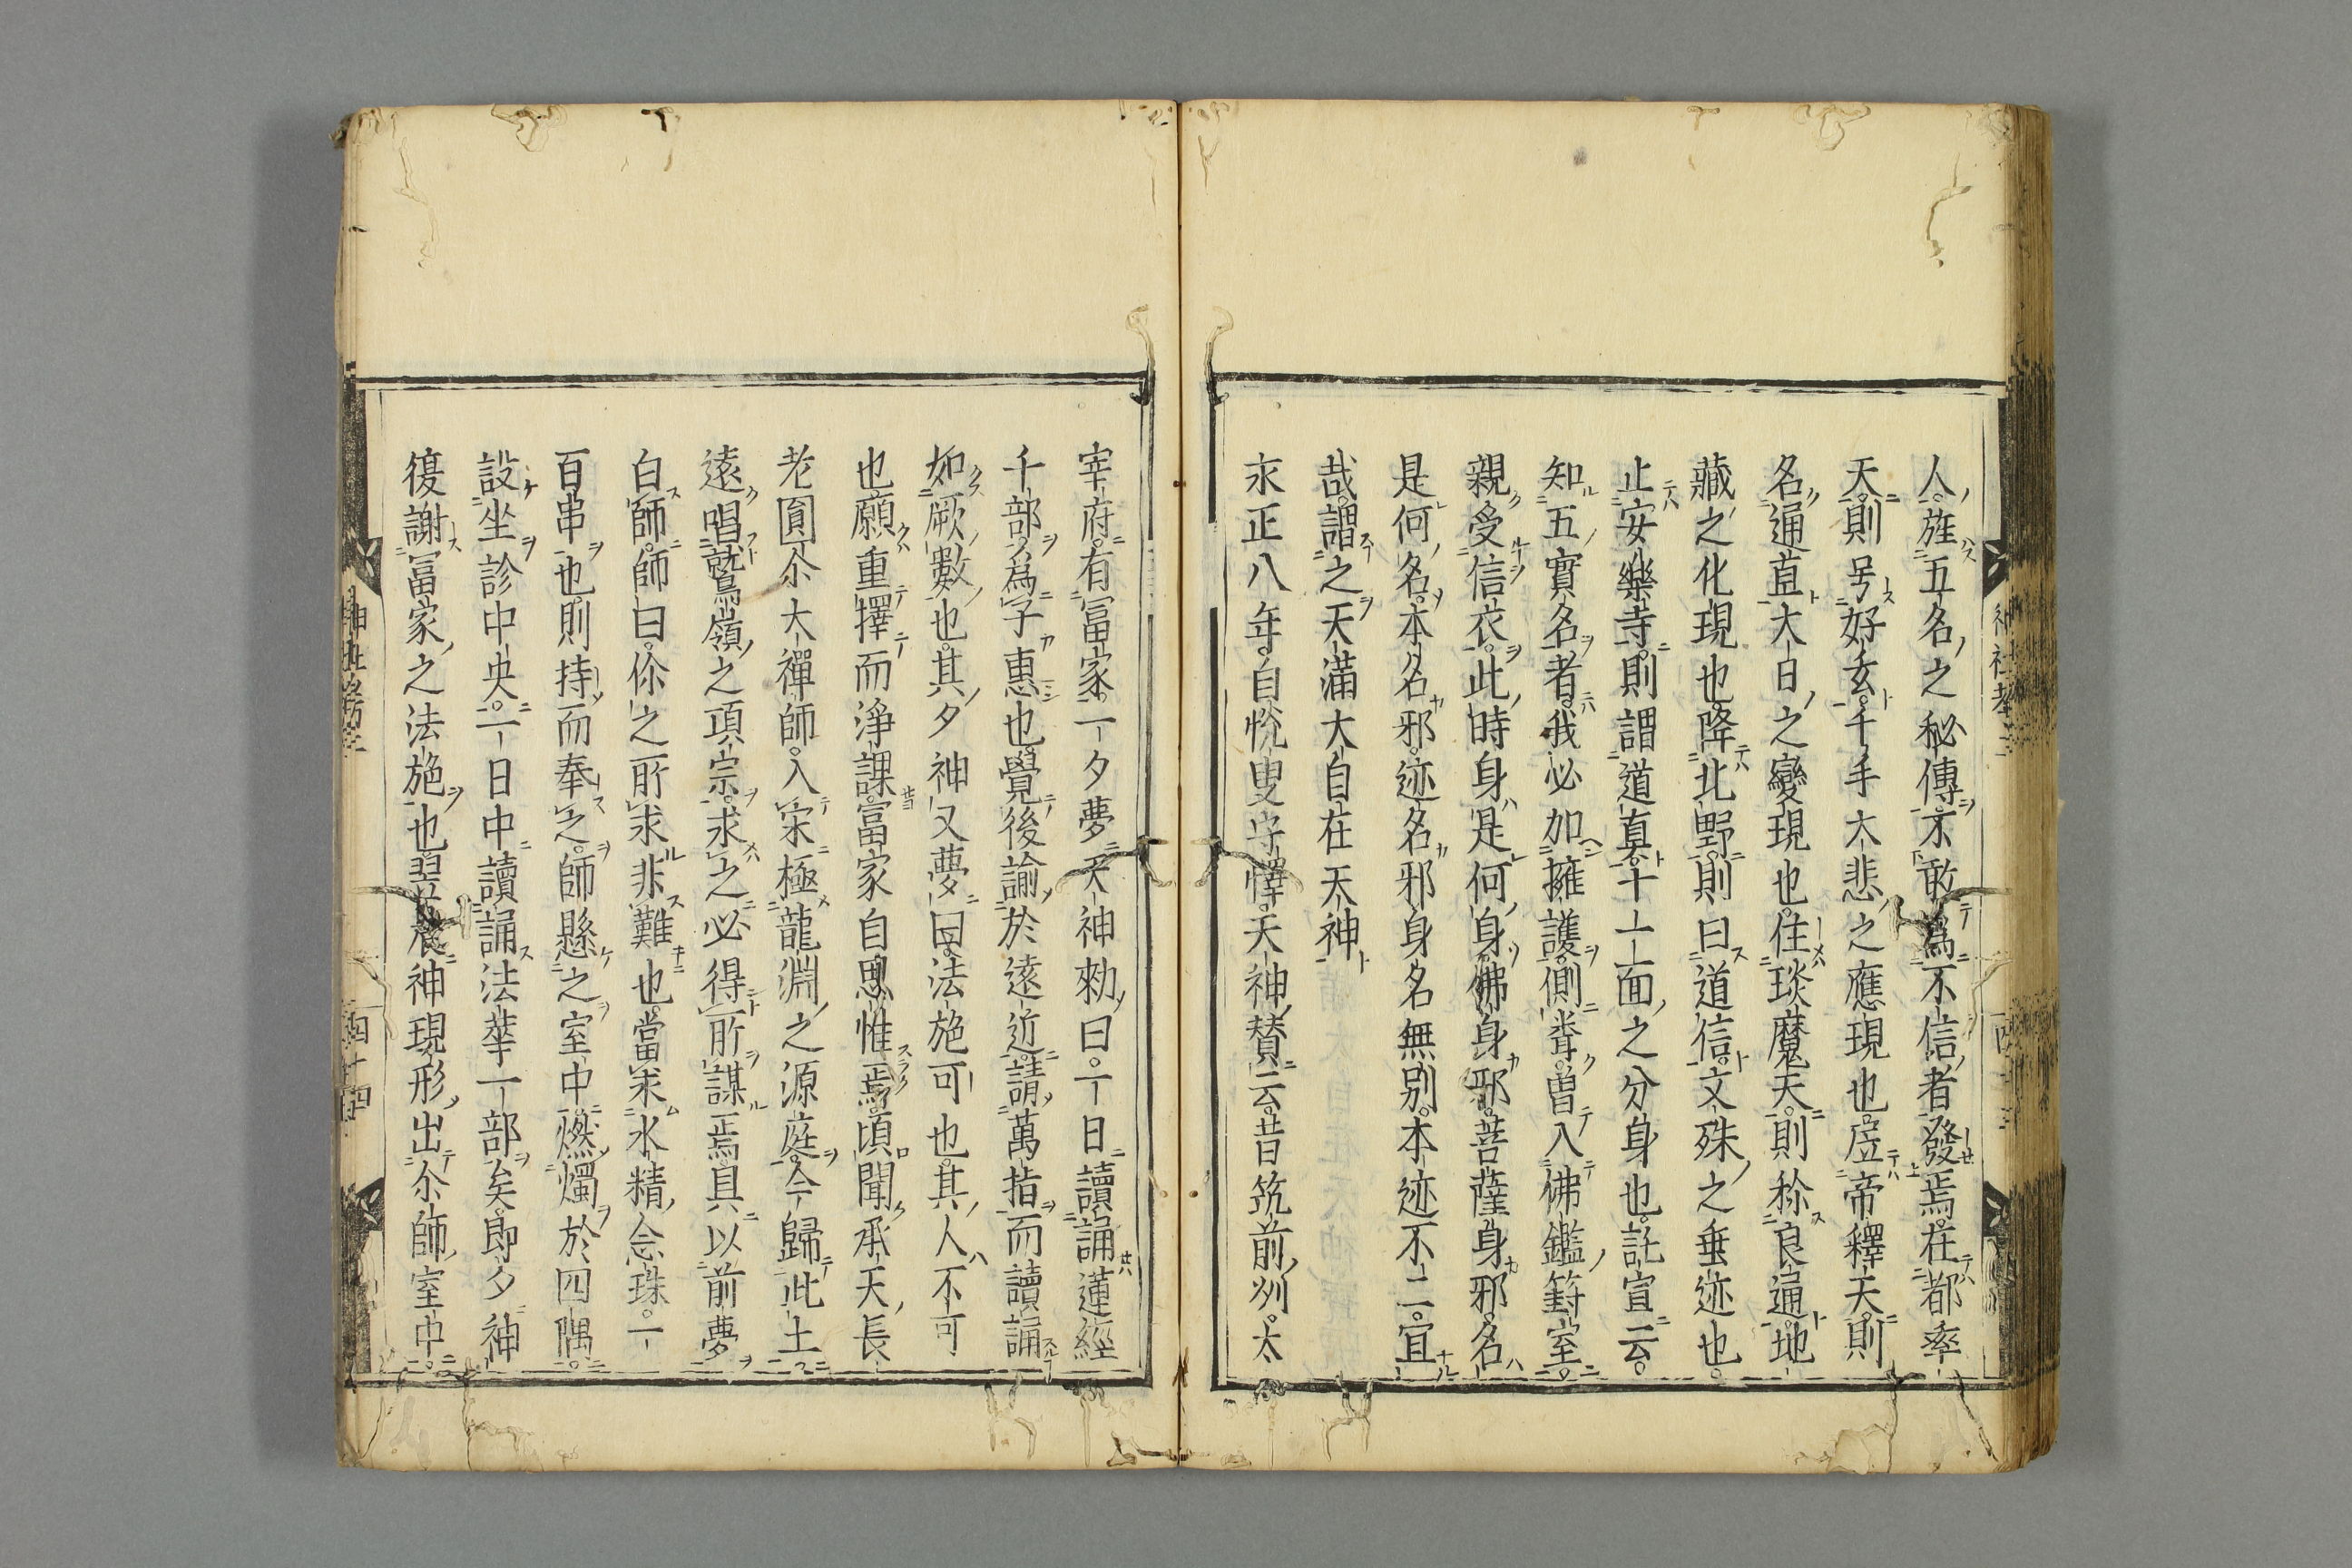 人旌五名之秘傳不敢爲不信者發焉在都率
天則号好玄千手大悲之應現也居帝釋天則
名通直大日之變現也住琰魔天則称良遍地
藏之化現也降北野則曰道信文殊之垂迹也
止安樂寺則謂道真十一面之分身也託宣云
知五實名者我必加擁護側聋曽入佛鑑對室
親受信衣此時身是何身佛身邪菩薩身邪名
是何名本名邪迹名邪身名無別本迹不二宜
哉謂之天滿大自在天神
永正八年自悅叟守懌天神賛云昔筑前州太
宰府有冨家一夕夢天神勑曰一日讀誦蓮經
千部爲予惠也覺後諭於遠近請萬指而讀誦
如厥數也其夕神又夢曰法施可也其人不可
也願重擇而淨課冨家自思惟焉頃聞承天長
老圓尒大禪師入宋極龍淵之源庭今歸此土
遠唱鷲嶺之頂宗求之必得所謀焉具以前夢
白師師曰你之所求非難也當求水精念珠一
百串也則持而奉之師懸之室中燃燭於四隅
設坐診中央一日中讀誦法華一部矣即夕神
復謝冨家之法施也翌晨神現形出尒師室中
神社考三
四十三
四十四